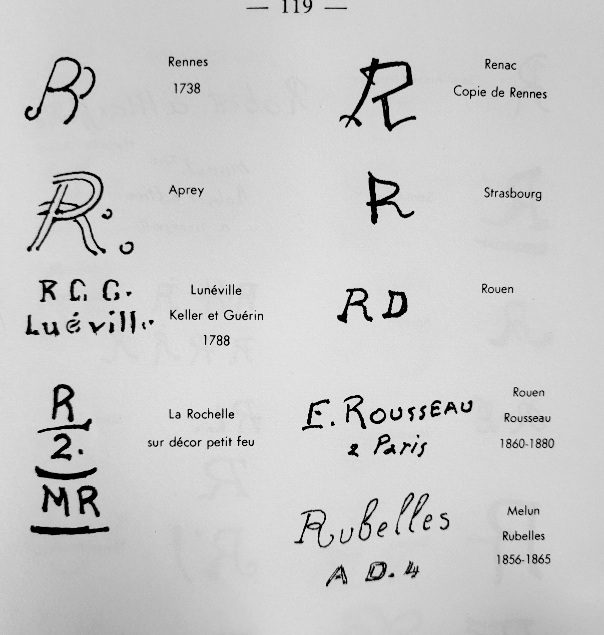 — 119 —
R
Rennes
1738
R
Renac
Copie de Rennes
R.
Aprey
R
Strasbourg
R G. G.
Luéville.
Lunéville
Keller et Guérin
1788
R D
Rouen
R
2.
MR
La Rochelle
sur décor petit feu
E. ROUSSEAU
Paris
Rouen
Rousseau
1860-1880
Rubelles
A D. 4
Melun
Rubelles
1856-1865